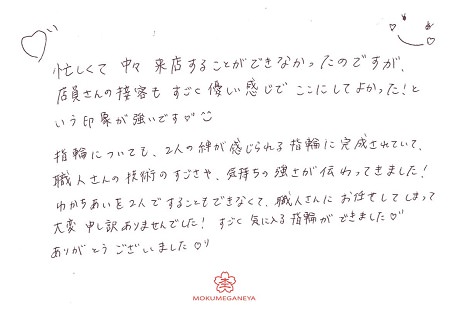 忙しくて 中々 来店することができなかったのですが、
店員さんの接客も すごく優しい感じで ここにしてよかった!と
いう印象が強いです♡☺
指輪についても、2人の絆が感じられる指輪に完成されていて、
職人さんの技術のすごさや、気持ちの強さが伝わってきました!
わかちあいを2人ですることもできなくて、職人さんに お任せしてしまって
大変 申し訳ありませんでした! すごく 気に入る指輪ができました♡
ありがとうございました♡
MOKUMEGANEYA